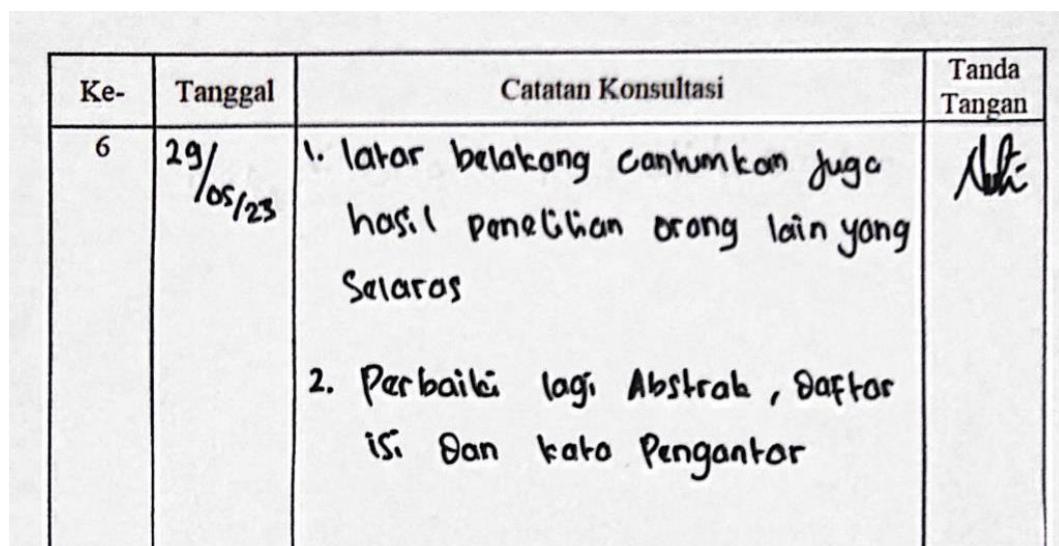 Ke- Tanggal Catatan Konsultasi Tanda Tangan
6 29/05/23 1. latar belakang cantumkan juga
hasil penelitian orang lain yang
Selaras
2. Perbaiki lagi Abstrak, Daftar
isi Dan kata Pengantar